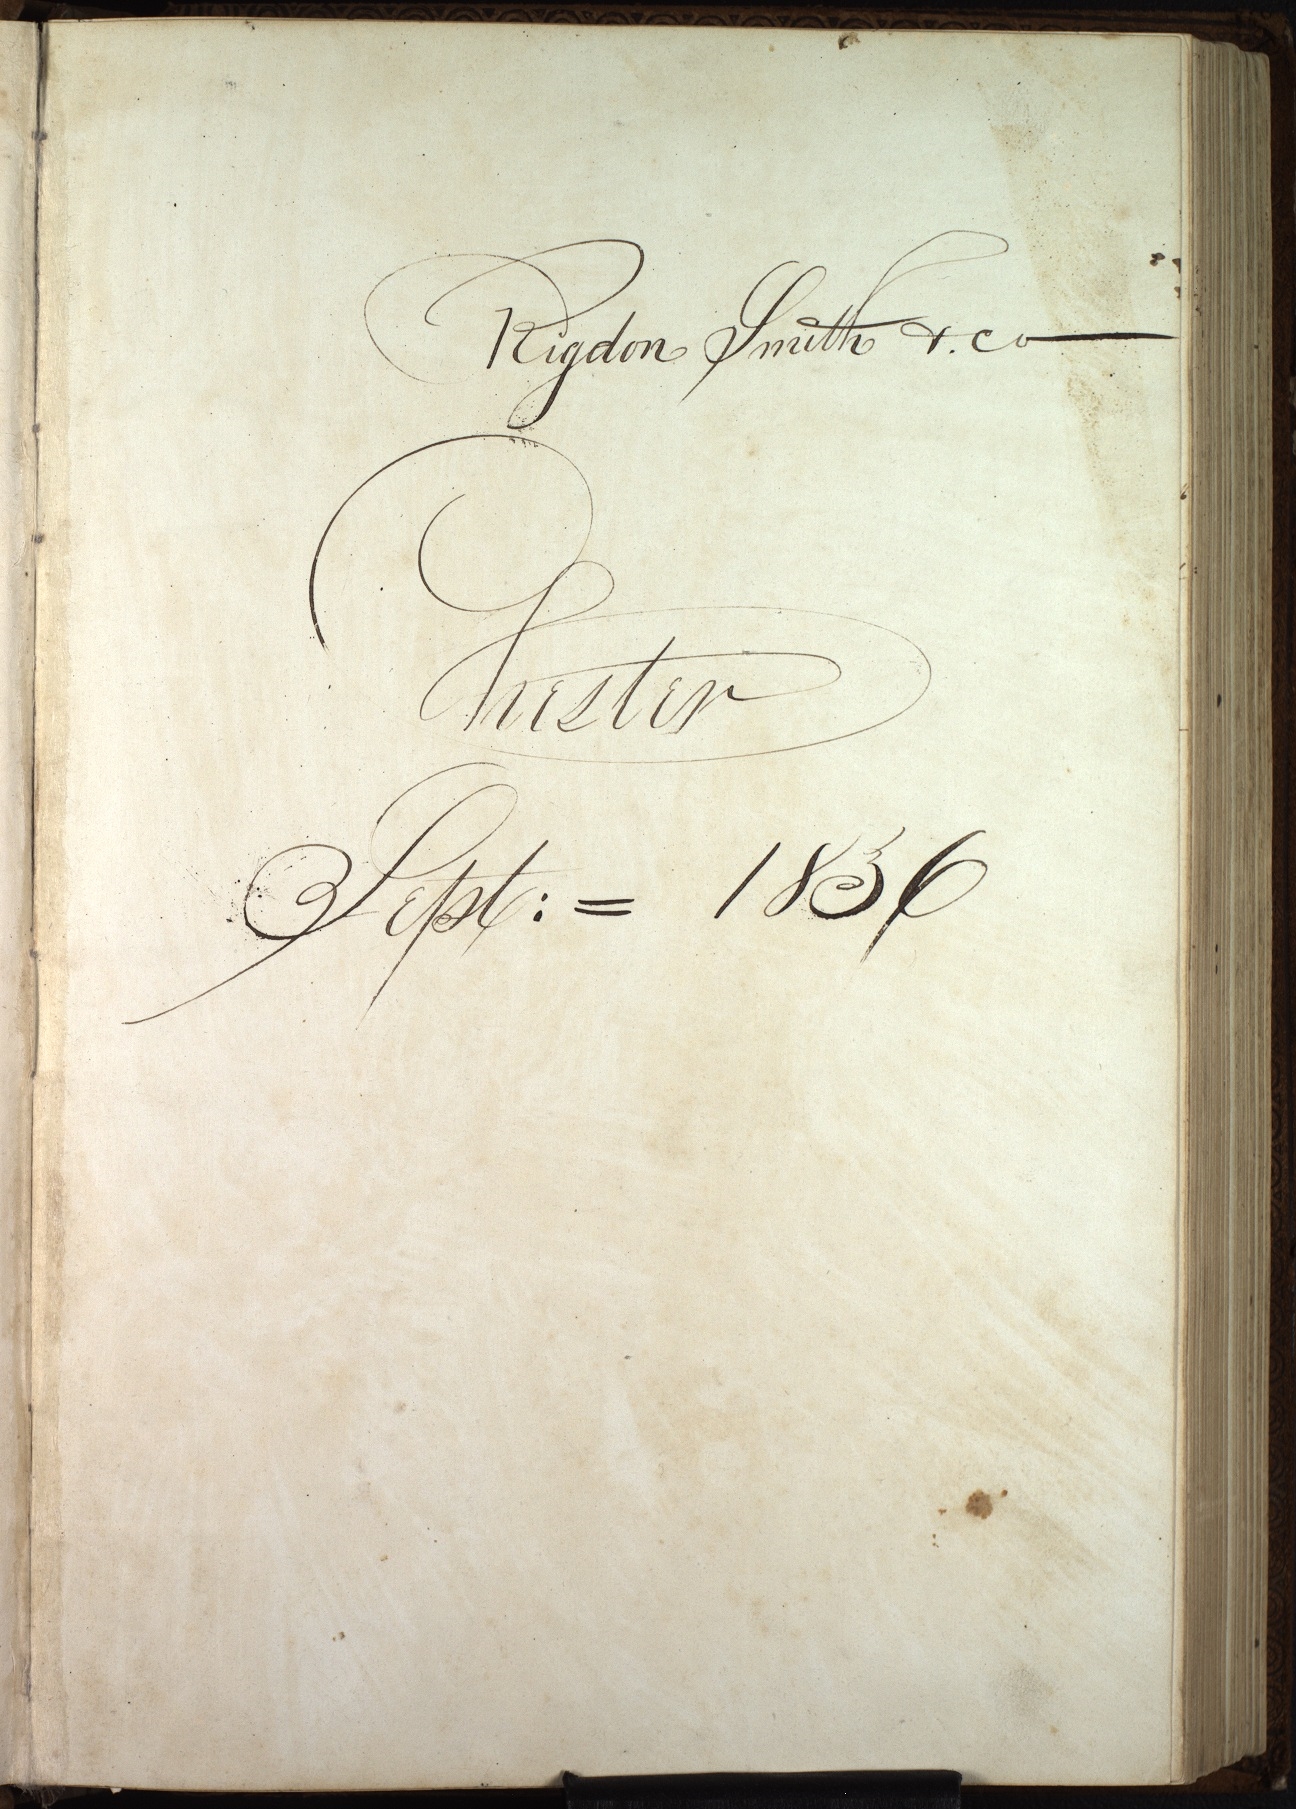 Rigdon Smith & .co
Chester
Sept : = 1836